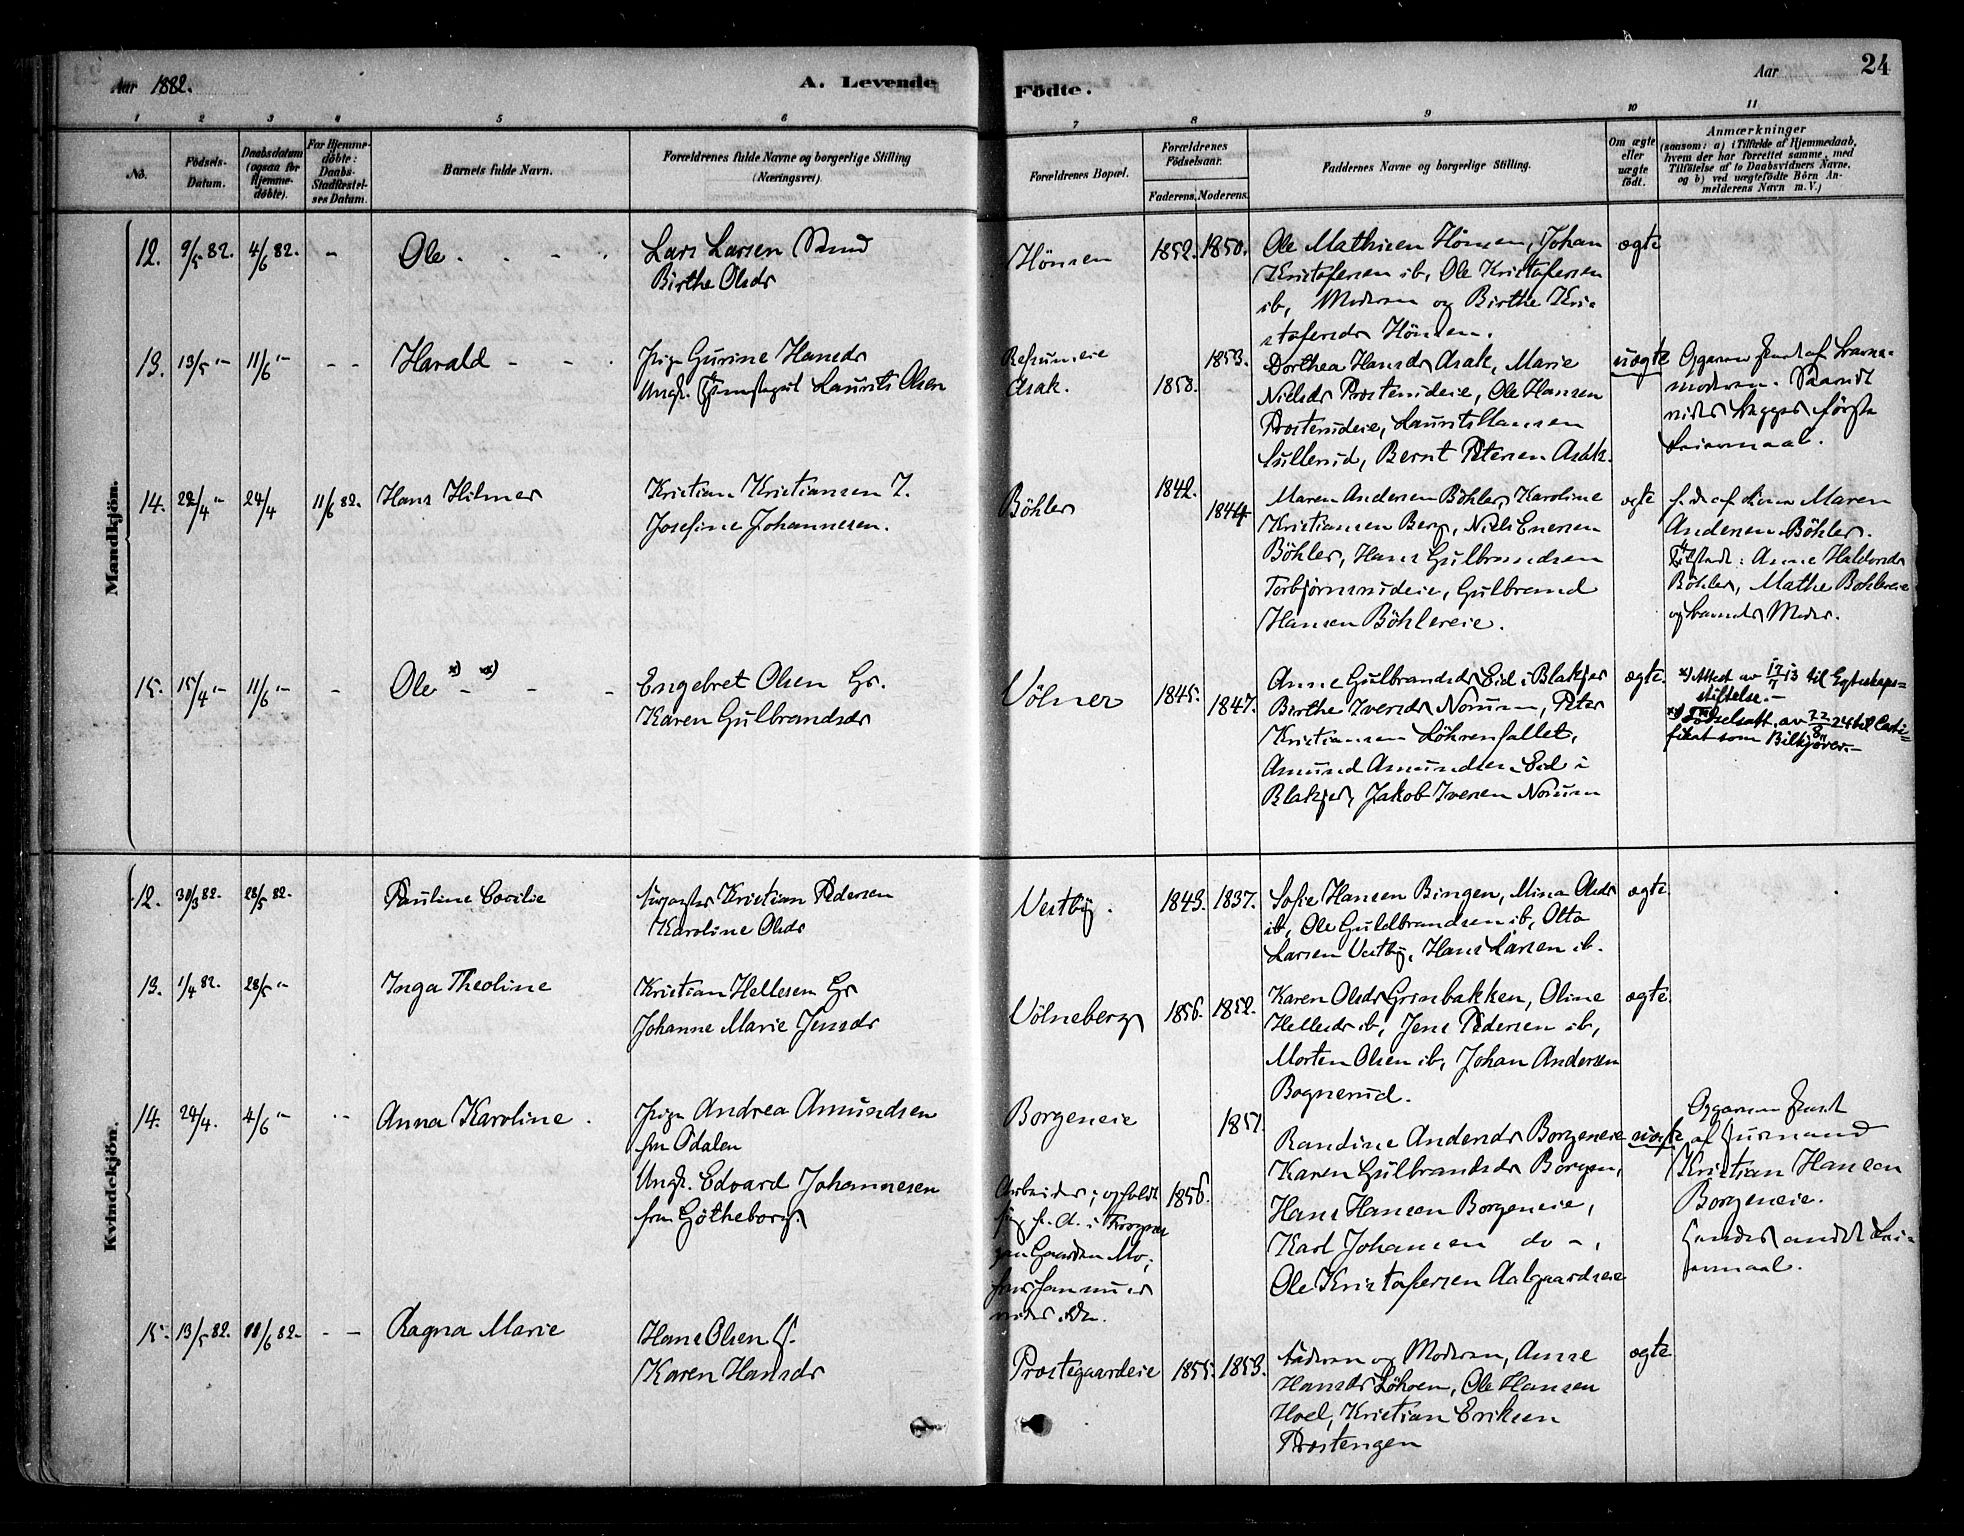 Aar 1882.
A. Levende
Födte.
Aar
24
1 2 3 4 5 6 7 8 9 10 11
No.
Födsels-
Datum.
Daabsdatum
(ogsaa for
Hjemme-
döbte).
For Hjemme-
döbte:
Daabs-
Stadfæstel-
ses Datum.
Barnets fulde Navn.
Forældrenes fulde Navne og borgerlige Stilling
(Næringsvei).
Forældrenes Bopæl.
Forældrenes
Födselsaar.
Faderens. Moderens.
Faddernes Navne og borgerlige Stilling.
Om ægte
eller
uægte
födt.
Anmærkninger
(saasom: a) i Tilfælde af Hjemmedaab,
hvem der har forrettet samme, med
Tilföielse af to Daabsvidners Navne,
og b) ved uægtefödte Börn An-
melderens Navn m. V.)
Mandkjön.
12. 9/5 82. 4/6 82. - Ole
Lars Larsen
Birthe Olsdr
Hönsen 1852. 1850.
Ole Mathisen Hönsen, Johan
Kristofersen ib, Ole Kristofersen
ib, Moderen og Birthe Kri-
stofersdr Hönsen.
ægte
13. 13/5 - 11/6 - - - Harald
Pige Gurine Hansdr
Ungk. Laurits Olsen
Asak. 1858. 1853.
Dorthea Hansdr Asak, Marie
Nielsdr Prestenudeie, Ole Hansen
Prostenudeie, Laurits Hansen
Lullerud, Bernt Petersen Asak.
uægte
Opgaven af Barne-
moderen.
første
Leiermaal.
14. 22/4 - 24/4 11/6 82. Hans Hilmer
Kristian Kristiansen I.
Josefine Johannesen.
Böhler 1842. 1844
Maren Andersen Böhler, Karoline
Kristiansen Berg, Niels Enersen
Böhler, Hans Gulbrandsen
Torbjørnsrudeie, Gulbrand
Hansen Böhlereie.
ægte
af Maren
Andersen Böhler.
Anne Haldorsdr
Böhler, Mathe Bøhlereie
og Barnets Moder.
15. 15/4 - 11/6 - - Ole x) xx)
Engebret Olsen Gr.
Karen Gulbrandsdr
Völner 1845. 1847.
Anne Gulbrandsdr Eid i Blakjer
Birthe Iversdr Norum, Peter
Kristiansen Löhrenfallet,
Amund Amundsen Eid i
Blakjer, Jakob Iversen Norum
ægte.
x) Attest av 17/7 13 til Egteskaps-
stiftelse.-
xx) Födselsatt. av 22/8 24 til Certi-
fikat som Bilkjører.-
Kvindekjön.
12. 30/3 82. 28/5 82. Pauline Cecilie
Kristian Pedersen
Karoline Olsdr
Vestby. 1843. 1837.
Sofie Hansen Bingen, Mina Olsdr
ib, Ole Guldbrandsen ib, Otto
Larsen Vestby, Hans Larsen ib.
ægte
13. 1/4 82. 28/5 - Inga Theoline
Kristian Hellesen Gr
Johanne Marie Jensdr
Völneberg 1856. 1852.
Karen Olsdr Grinbakken, Oline
Hellesdr ib, Jens Pedersen ib,
Morten Olsen ib, Johan Andersen
Bognerud.
ægte
14. 24/4. 4/6 - - - Anna Karoline.
Pige Andrea Amundsen
fra Odalen
Ungk. Edvard Johannesen
fra Götheborg.
Borgeneie 1857.
Arbeider; opholdt
sig f. d. i
1856.
Randine Andersdr Borgeneie
Karen Gulbrandsdr Borgen,
Hans Hansen Borgeneie,
Karl Johansen do -,
Ole Kristofersen Aalgaardseie
uægte
Opgaven
af Husmand
Kristian Hansen
Borgeneie.
Hendes andet Lei-
ermaal.
15. 13/5 82. 11/6 82. - - Ragna Marie
Hans Olsen
Karen Hansdr
Prostegaardeie 1855. 1853.
Faderen og Moderen, Anne
Hansdr Löhren, Ole Hansen
Hoel, Kristian Eriksen
Prostengen
ægte